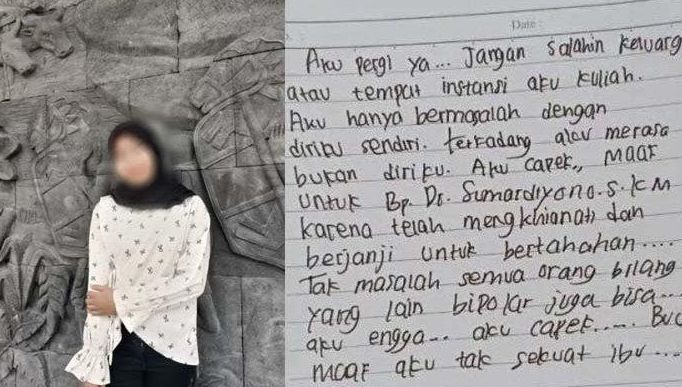 Date :
Aku pergi ya... Jangan salahin keluarg
atau tempat instansi aku kuliah.
Aku hanya bermasalah dengan
diriku sendiri. terkadang aku merasa
bukan diriku. Aku capek., maaf
untuk Bp. Dr. Sumardiyono.S.KM
karena telah mengkhianati dan
berjanji untuk bertahahan....
Tak masalah semua orang bilang
yang lain bipolar juga bisa...
aku engga.. aku capek.... Buu
maaf aku tak sekuat ibu....